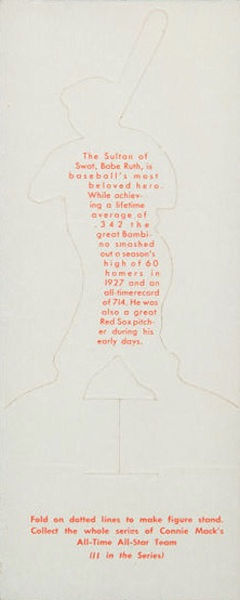 The Sultan of
Swat, Babe Ruth, is
baseball's most
beloved hero.
While achiev-
ing a lifetime
average of
.342 the
great Bambi-
no smashed
out a season's
high of 60
homers in
1927 and an
all-timerecord
of 714. He was
also a great
Red Sox pitch-
er during his
early days.
Fold on dotted lines to make figure stand.
Collect the whole series of Connie Mack's
All-Time All-Star Team
(11 in the Series)